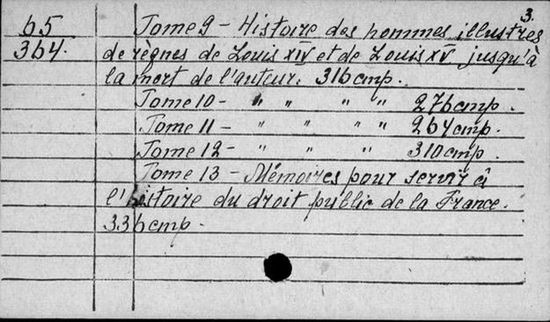 3.
65 Tome 9 - Histoire des hommes illustres
364. de règnes de Louis XIV et de Louis XV jusqu'à
la mort de l'auteur. 316 cmp.
Tome 10 - " " " " 276 cmp.
Tome 11 - " " " " 264 cmp.
Tome 12 - " " " " 310 cmp.
Tome 13 - Mémoires pour servir à
l'histoire du droit public de la France.
336 cmp.